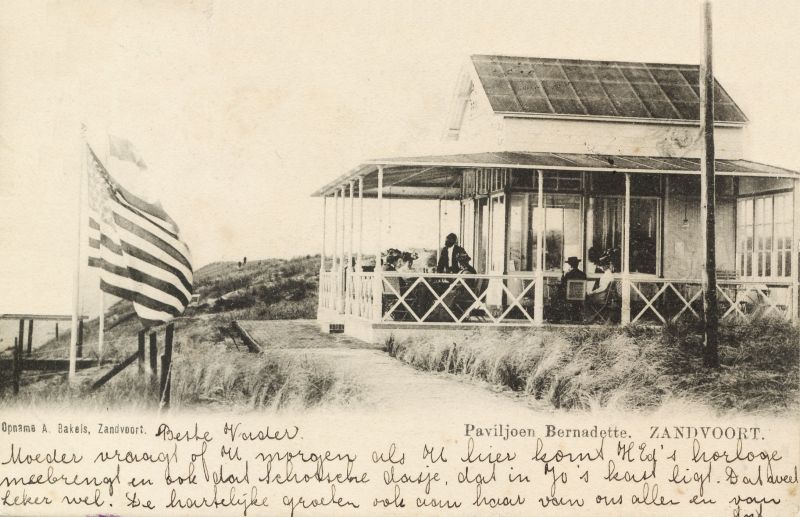 Opname A. Bakels, Zandvoort.
Paviljoen Bernadette. ZANDVOORT.
Beste Vader.
Moeder vraagt of U morgen als U hier komt horloge
meebrengt en ook dat schotsche dasje, dat in Jo's kast ligt. Dat weet
zeker wel. De hartelijke groeten ook aan haar van ons allen en van